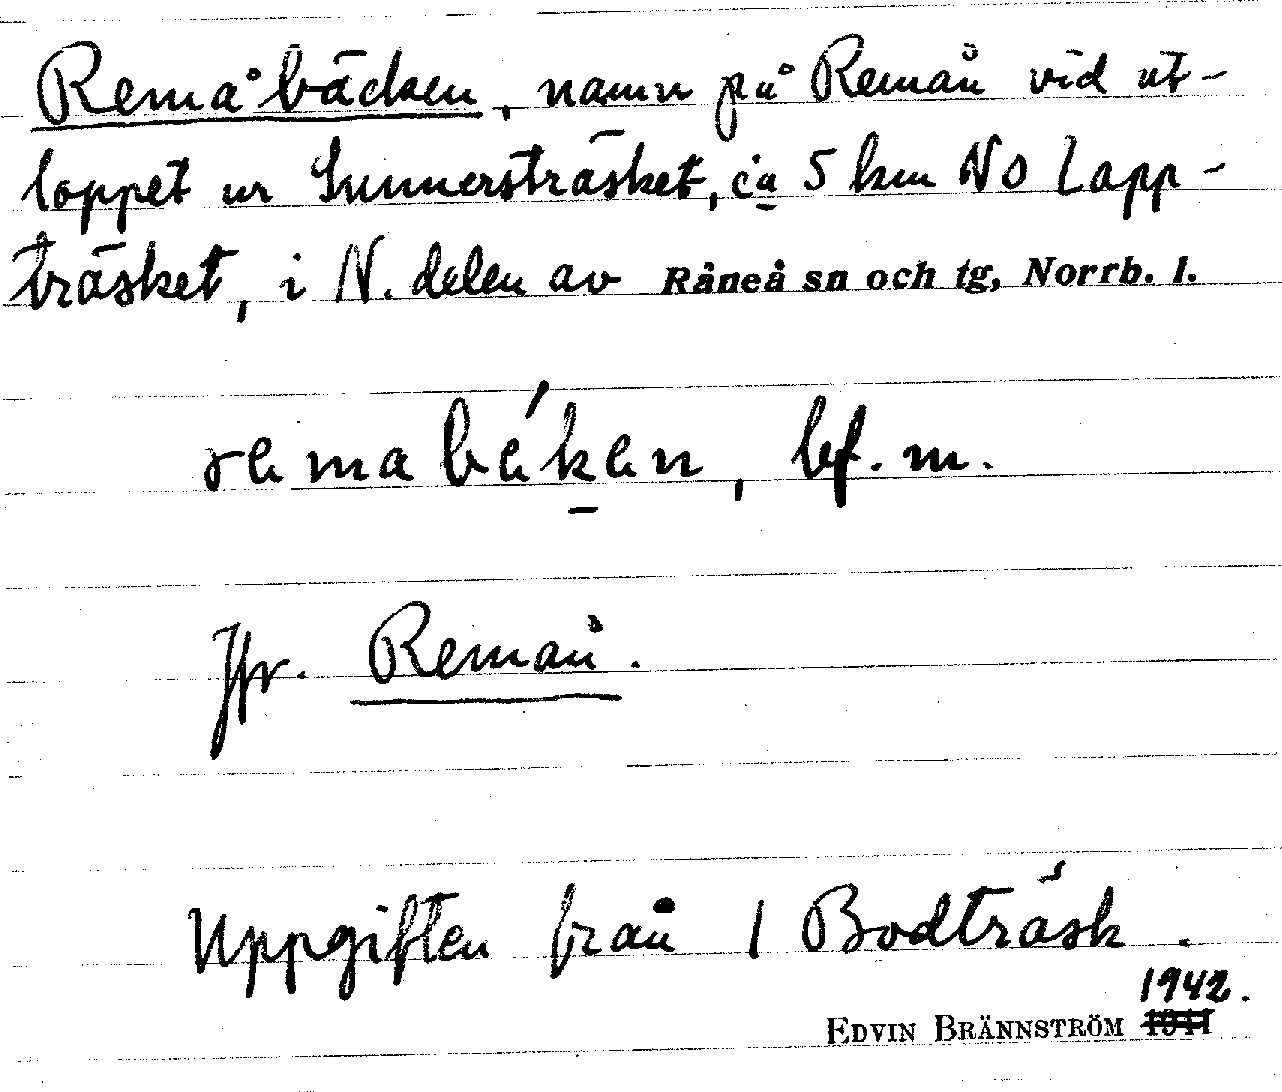 Remåbäcken, namn på Remån vid ut-
loppet ur Sunnersträsket, ca 5 km NO Lapp-
träsket, i N. delen av Råneå sn och tg, Norrb. l.
remabékan, bf. m.
Jfr. Remån.
Uppgiften från 1 Bodträsk.
1942.
EDVIN BRÄNNSTRÖM 1941